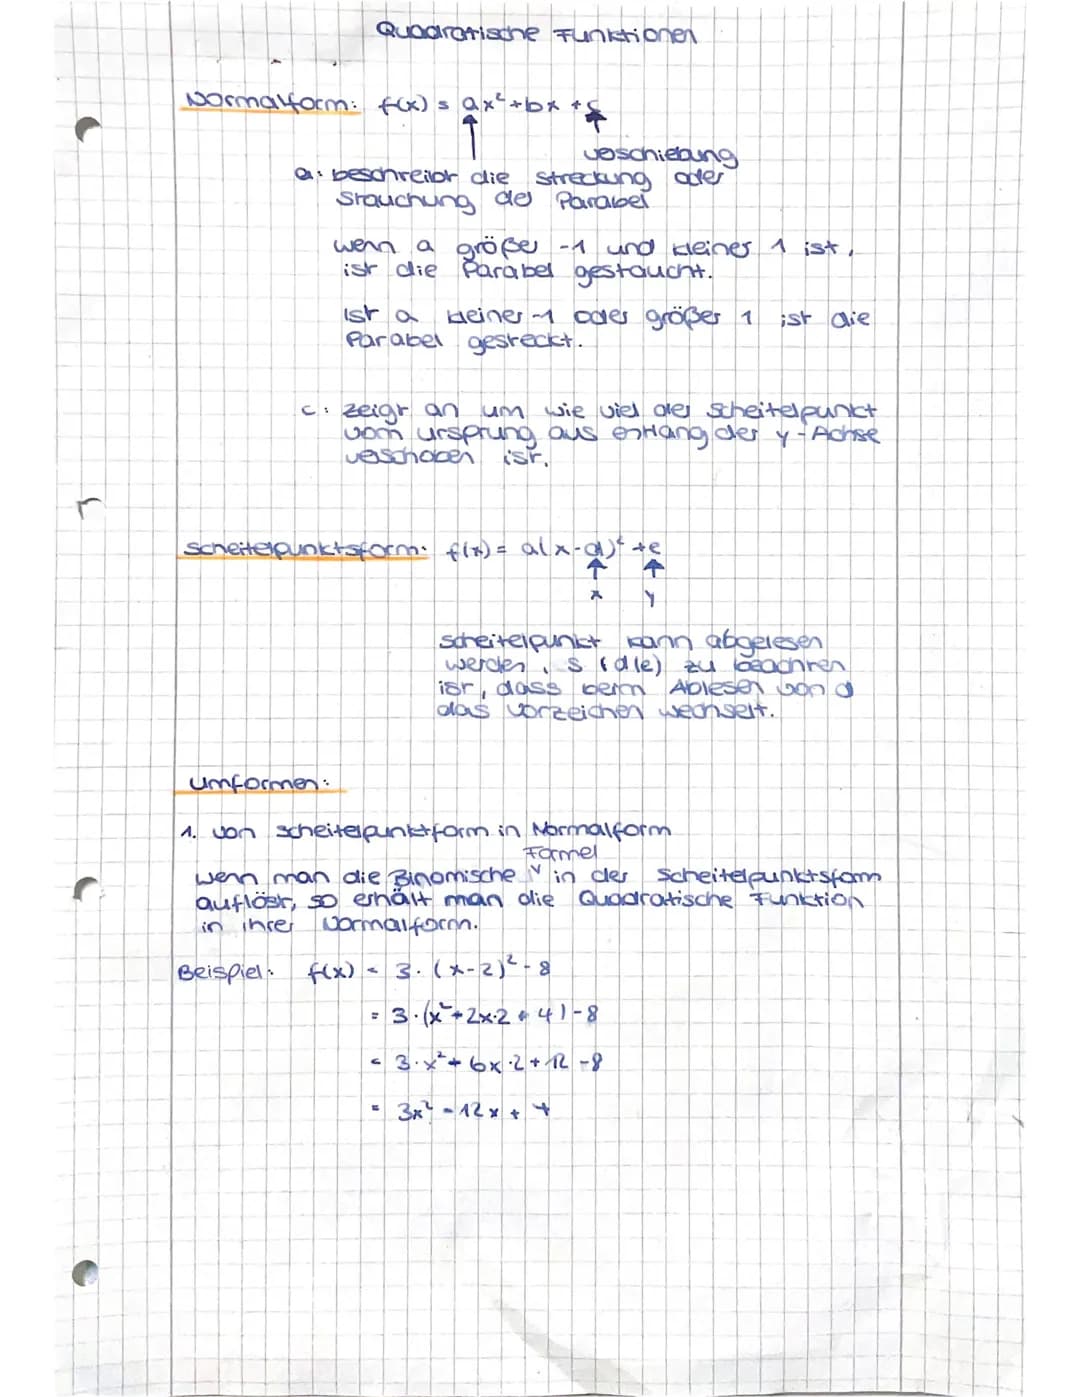 Quadratische Funktionen
Normalform: f(x) = ax² + bx + c
Veschiebung
a: beschreibt die Streckung oder
Stauchung der Parabel
wenn a größer -1 und kleiner 1 ist,
ist die Parabel gestaucht.
Ist a kleiner -1 oder größer 1 ist die
Parabel gestreckt.
c: zeigt an um wie viel der Scheitelpunkt
vom Ursprung aus entlang der y-Achse
veschoben ist.
Scheitelpunktsform: f(x) = a(x-d)² + e
x y
Scheitelpunkt kann abgelesen
werden, S (d|e) zu beachten
ist, dass beim Ablesen von d
das Vorzeichen wechselt.
Umformen:
1. von Scheitelpunktform in Normalform
Formel
wenn man die Binomische in der Scheitelpunktsform
auflöst, so erhält man die Quadratische Funktion
in ihrer Normalform.
Beispiel: f(x) = 3·(x-2)² - 8
= 3·(x² + 2x·2 + 4) - 8
= 3·x² + 6x·2 + 12 - 8
= 3x² - 12x + 4